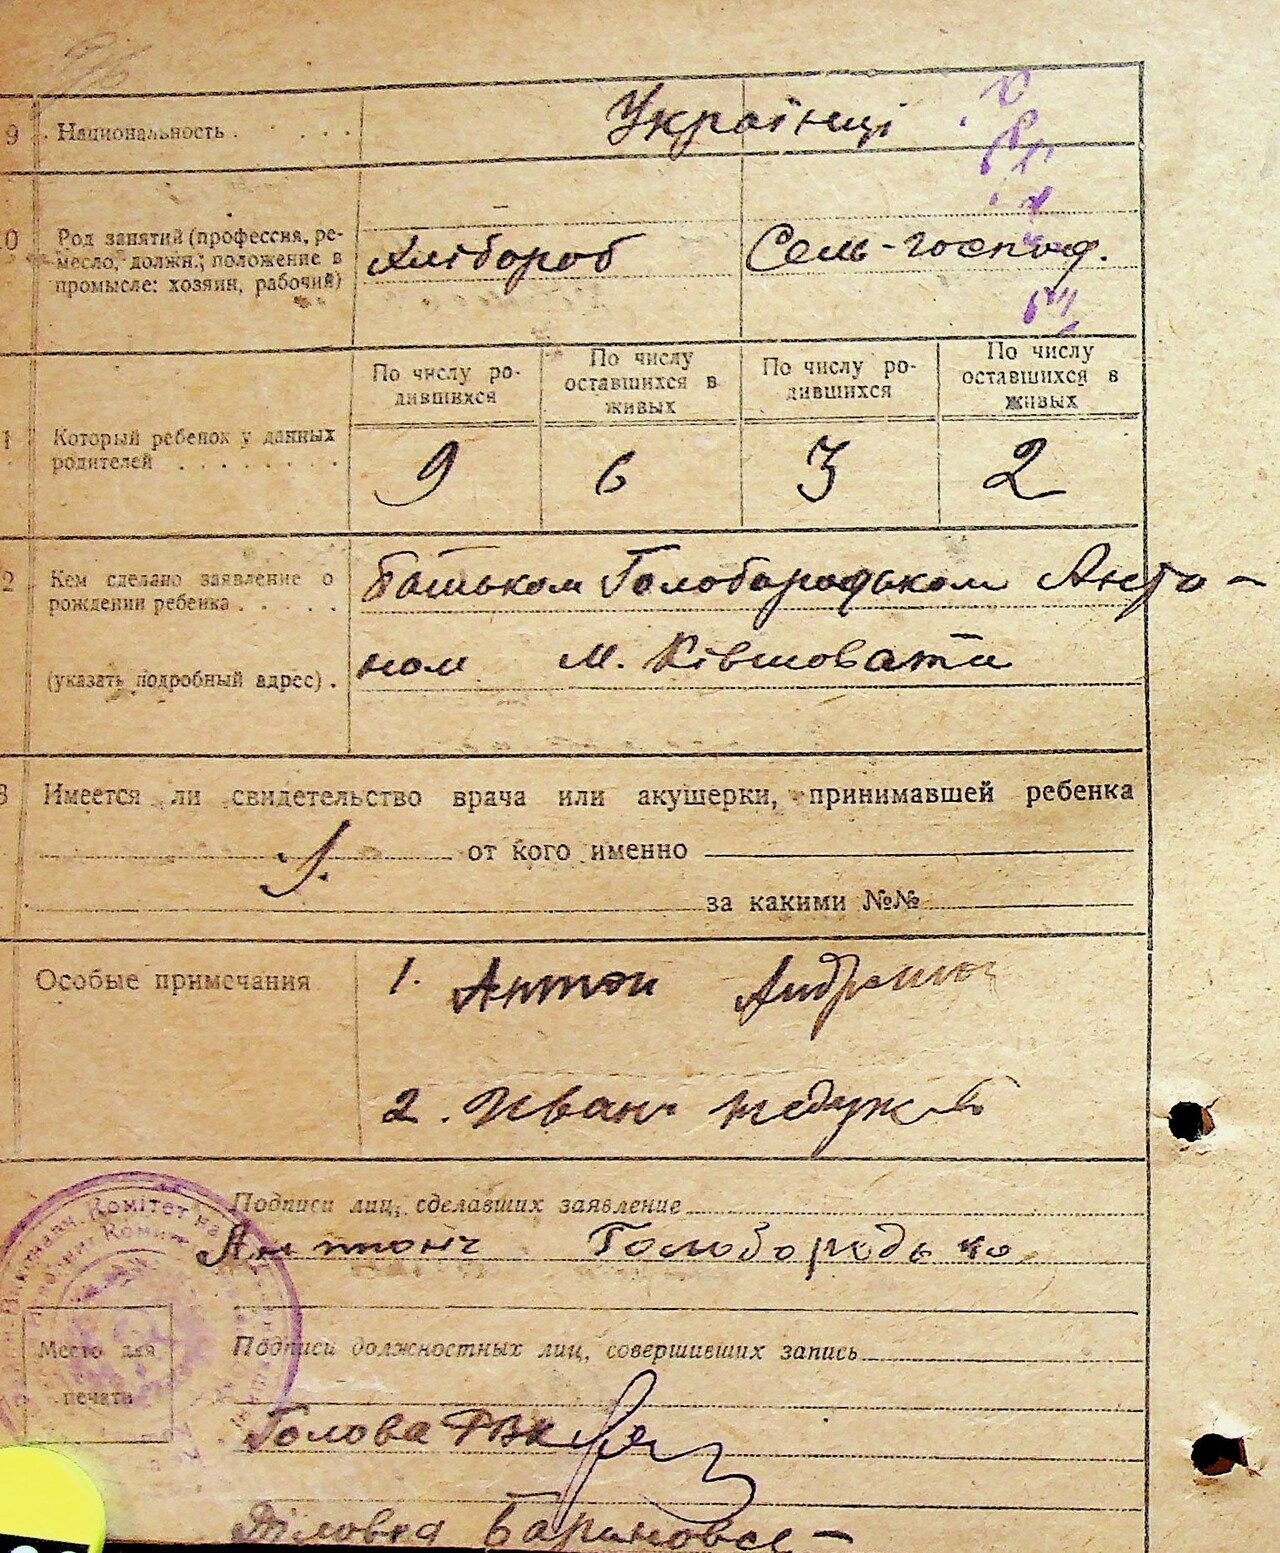 9 Национальность Українці
0 Род занятий (профессия, ре-
месло, должн.; положение в
промысле: хозяин, рабочий)
Хлібороб Сель-господ.
По числу ро-
дившихся
По числу
оставшихся в
живых
По числу ро-
дившихся
По числу
оставшихся в
живых
1 Который ребенок у данных
родителей
9 6 3 2
2 Кем сделано заявление о
рождении ребенка
(указать подробный адрес).
Батьком Голобородьком Анто-
ном м. Ківшовати
3 Имеется ли свидетельство врача или акушерки, принимавшей ребенка
от кого именно
за какими №№
Особые примечания
1. Антон
2. Иван
Подписи лиц, сделавших заявление
Голобородько
Место для
печати
Подписи должностных лиц, совершивших запись
Голова РВК